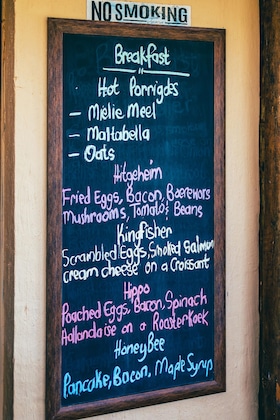 NO SMOKING
Breakfast
Hot Porrigds
- Mielie Meel
- Maltabella
- Oats
Hitgeheim
Fried Eggs, Bacon, Boerewors
Mushrooms, Tomato & Beans
Kingfisher
Scrambled Eggs, Smoked Salmon
cream cheese on a Croissant
Hippo
Poached Eggs, Bacon, Spinach
Hollandaise on a Roosterkoek
Honey Bee
Pancake, Bacon, Maple Syrup